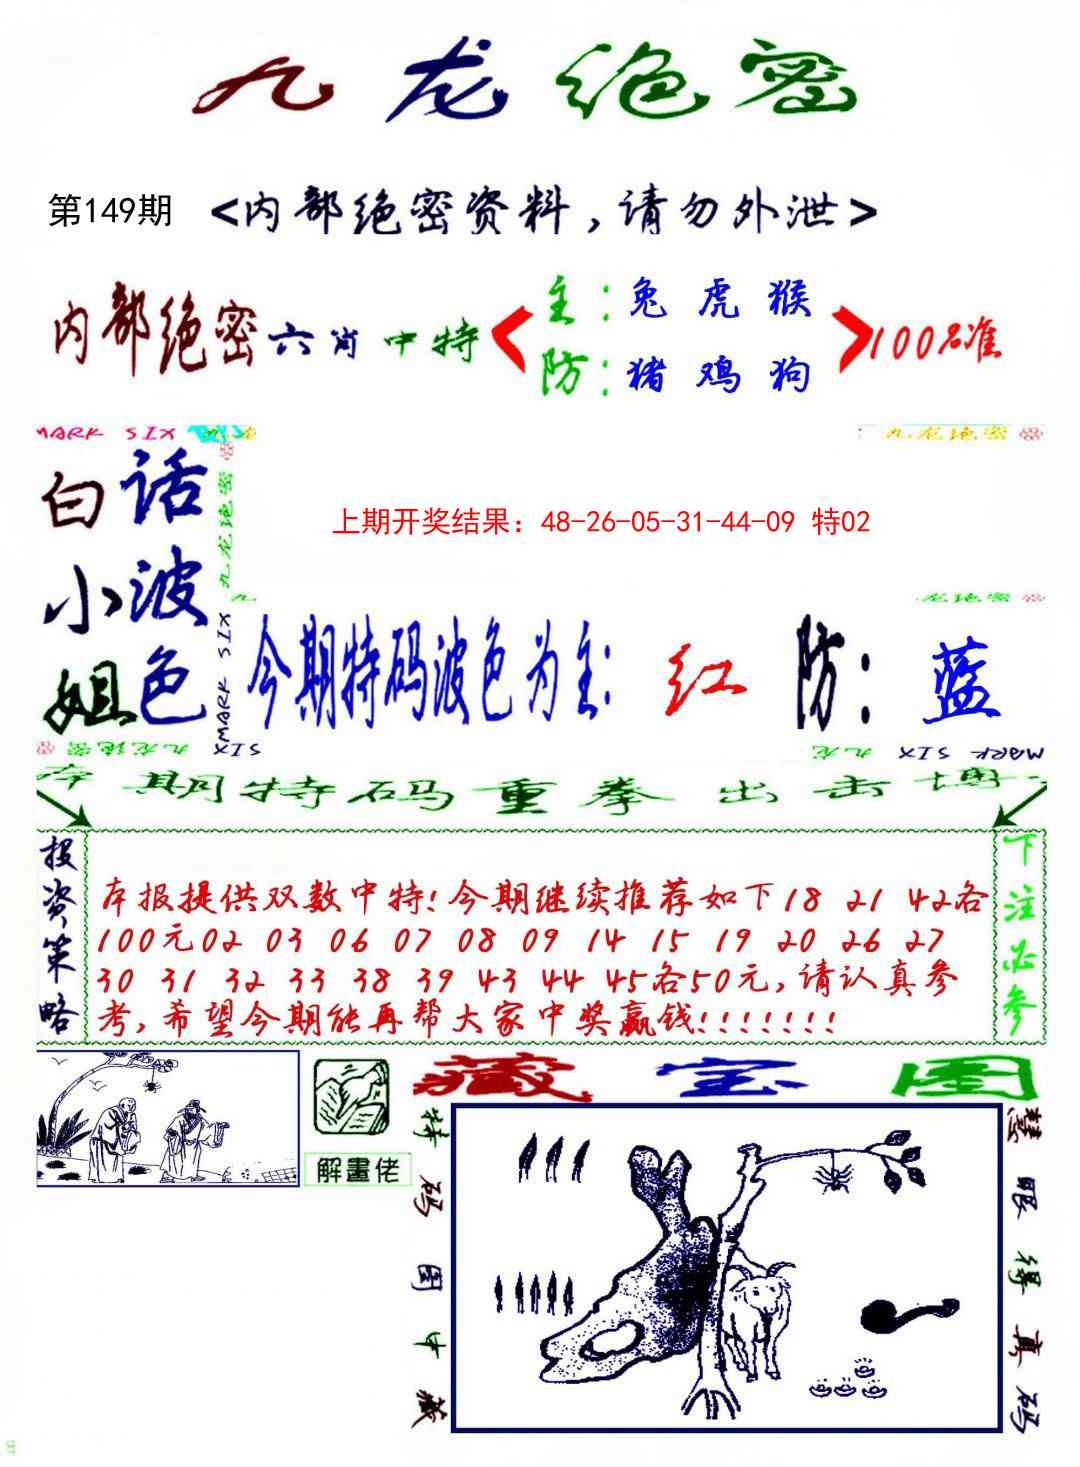 九龙绝密
第149期 <内部绝密资料,请勿外泄>
内部绝密六肖中特
主:兔 虎 猴
防:猪 鸡 狗
100%准
MARK SIX
九龙绝密
九龙绝密
白话
小波
姐色
上期开奖结果:48-26-05-31-44-09 特02
九龙绝密
MARK SIX
今期特码波色为主: 红 防: 蓝
九龙绝密
MARK SIX
九龙
MARK SIX
本期特码重拳出击博
投资策略
本报提供双数中特!今期继续推荐如下18 21 42各
100元02 03 06 07 08 09 14 15 19 20 26 27
30 31 32 33 38 39 43 44 45各50元,请认真参
考,希望今期能再帮大家中奖赢钱!!!!!!!
下注必参
解畫佬
藏宝图
特码图中藏
慧眼得真码